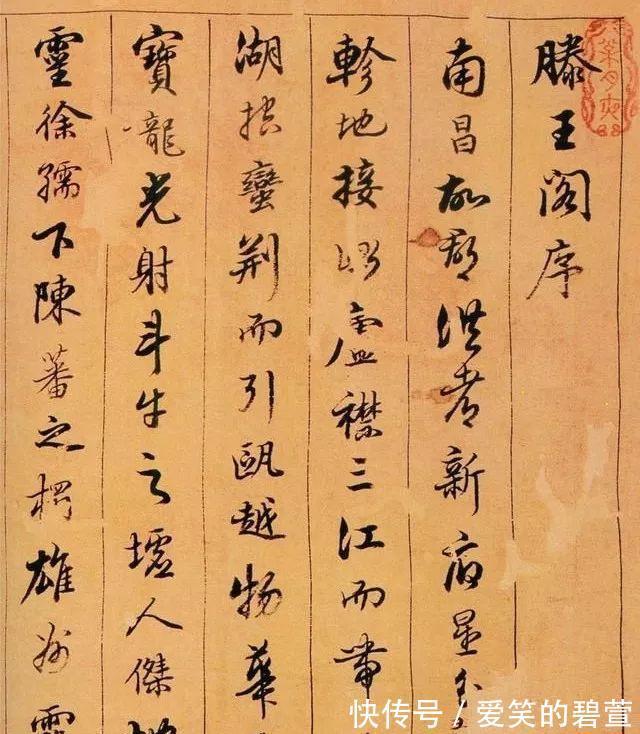 滕王閣序
南昌故郡洪都新府星分
軫地接衡廬襟三江而帶
湖控蠻荆而引甌越物華
寶龍光射斗牛之墟人傑地
靈徐孺下陳蕃之榻雄州霧
快传号 / 爱笑的碧萱